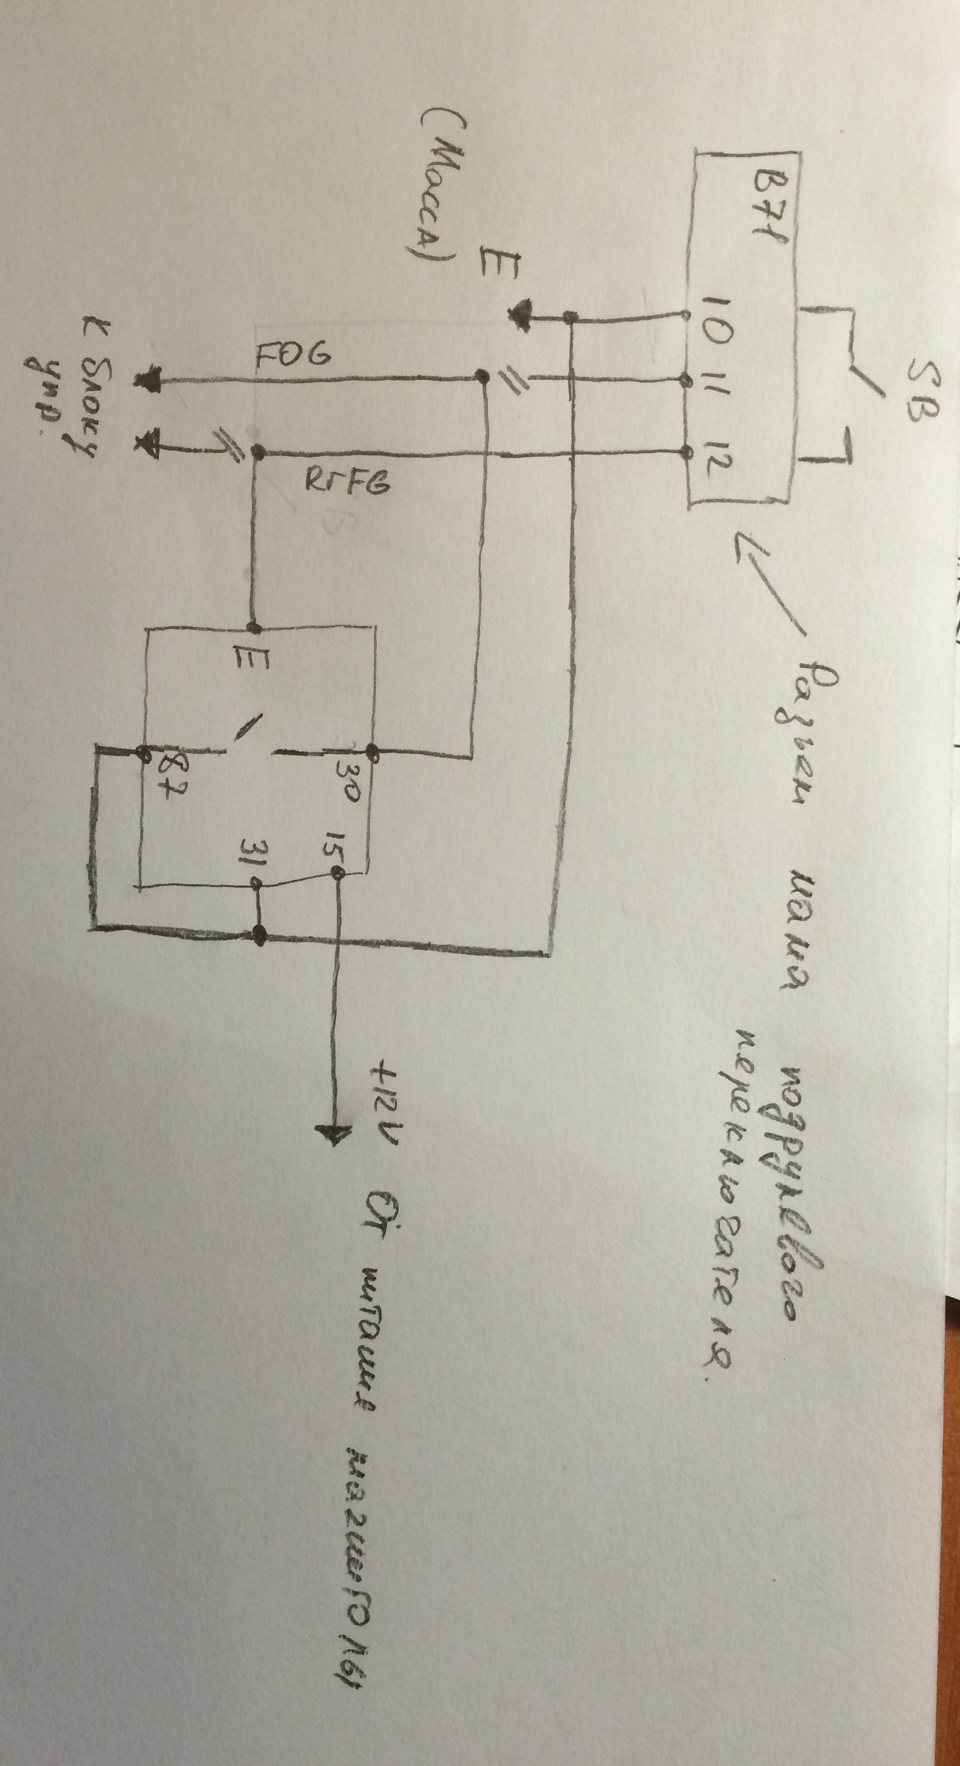 SB
B71
10 11 12
Разъем мама подрулевого
переключателя.
E
(Масса)
FOG
RrFG
К блоку
упр.
E
30
87
15
31
+12V От питания магнитолы